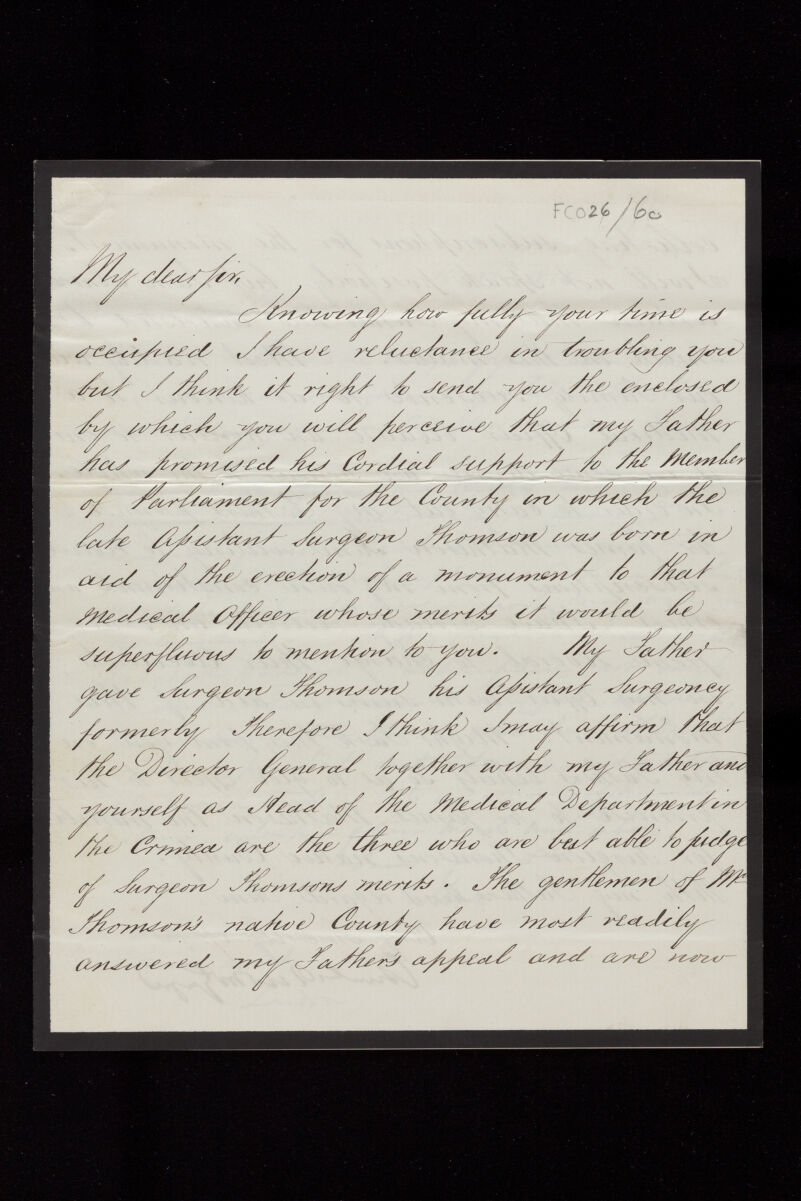 FCO26/60
My dear Sir,
Knowing how fully your time is
occupied I have reluctance in troubling you
but I think it right to send you the enclosed
by which you will perceive that my Father
has promised his Cordial support to the Member
of Parliament for the County in which the
late Assistant Surgeon Thomson was born in
aid of the erection of a monument to that
Medical Officer whose merits it would be
superfluous to mention to you. My Father
gave Surgeon Thomson his Assistant Surgeoncy
formerly Therefore I think I may affirm that
the Director General together with my Father and
yourself as Head of the Medical Department in
the Crimea are the three who are best able to judge
of Surgeon Thomsons merits. The gentlemen of Mr
Thomson's native County have most readily
answered my Father's appeal and are now